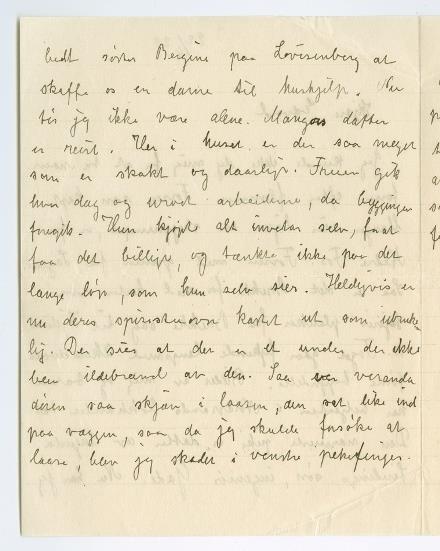 bedt søster Bergine paa Lovisenberg at
skaffe os en dame til hushjelp. Nu
tør jeg ikke være alene. Mangors datter
er reist. Her i huset er der saa meget
som er skakt og daarlig. Fruen gik
hver dag og urod arbeiderne, da byggingen
foregik. Hun kjøpte alt inventar selv, for at
faa det billige, og tænkte ikke paa det
lange løp, som hun selv sier. Heldigvis er
nu deres spiritusovn kastet ut som ubruke
lig. Der sies at der er et under der ikke
blev ildebrand av den. Saa var veranda
døren saa skjæv i laasen, den sat like ind
paa væggen, saa da jeg skulde forsøke at
laase, blev jeg skadet i venstre pekefinger.